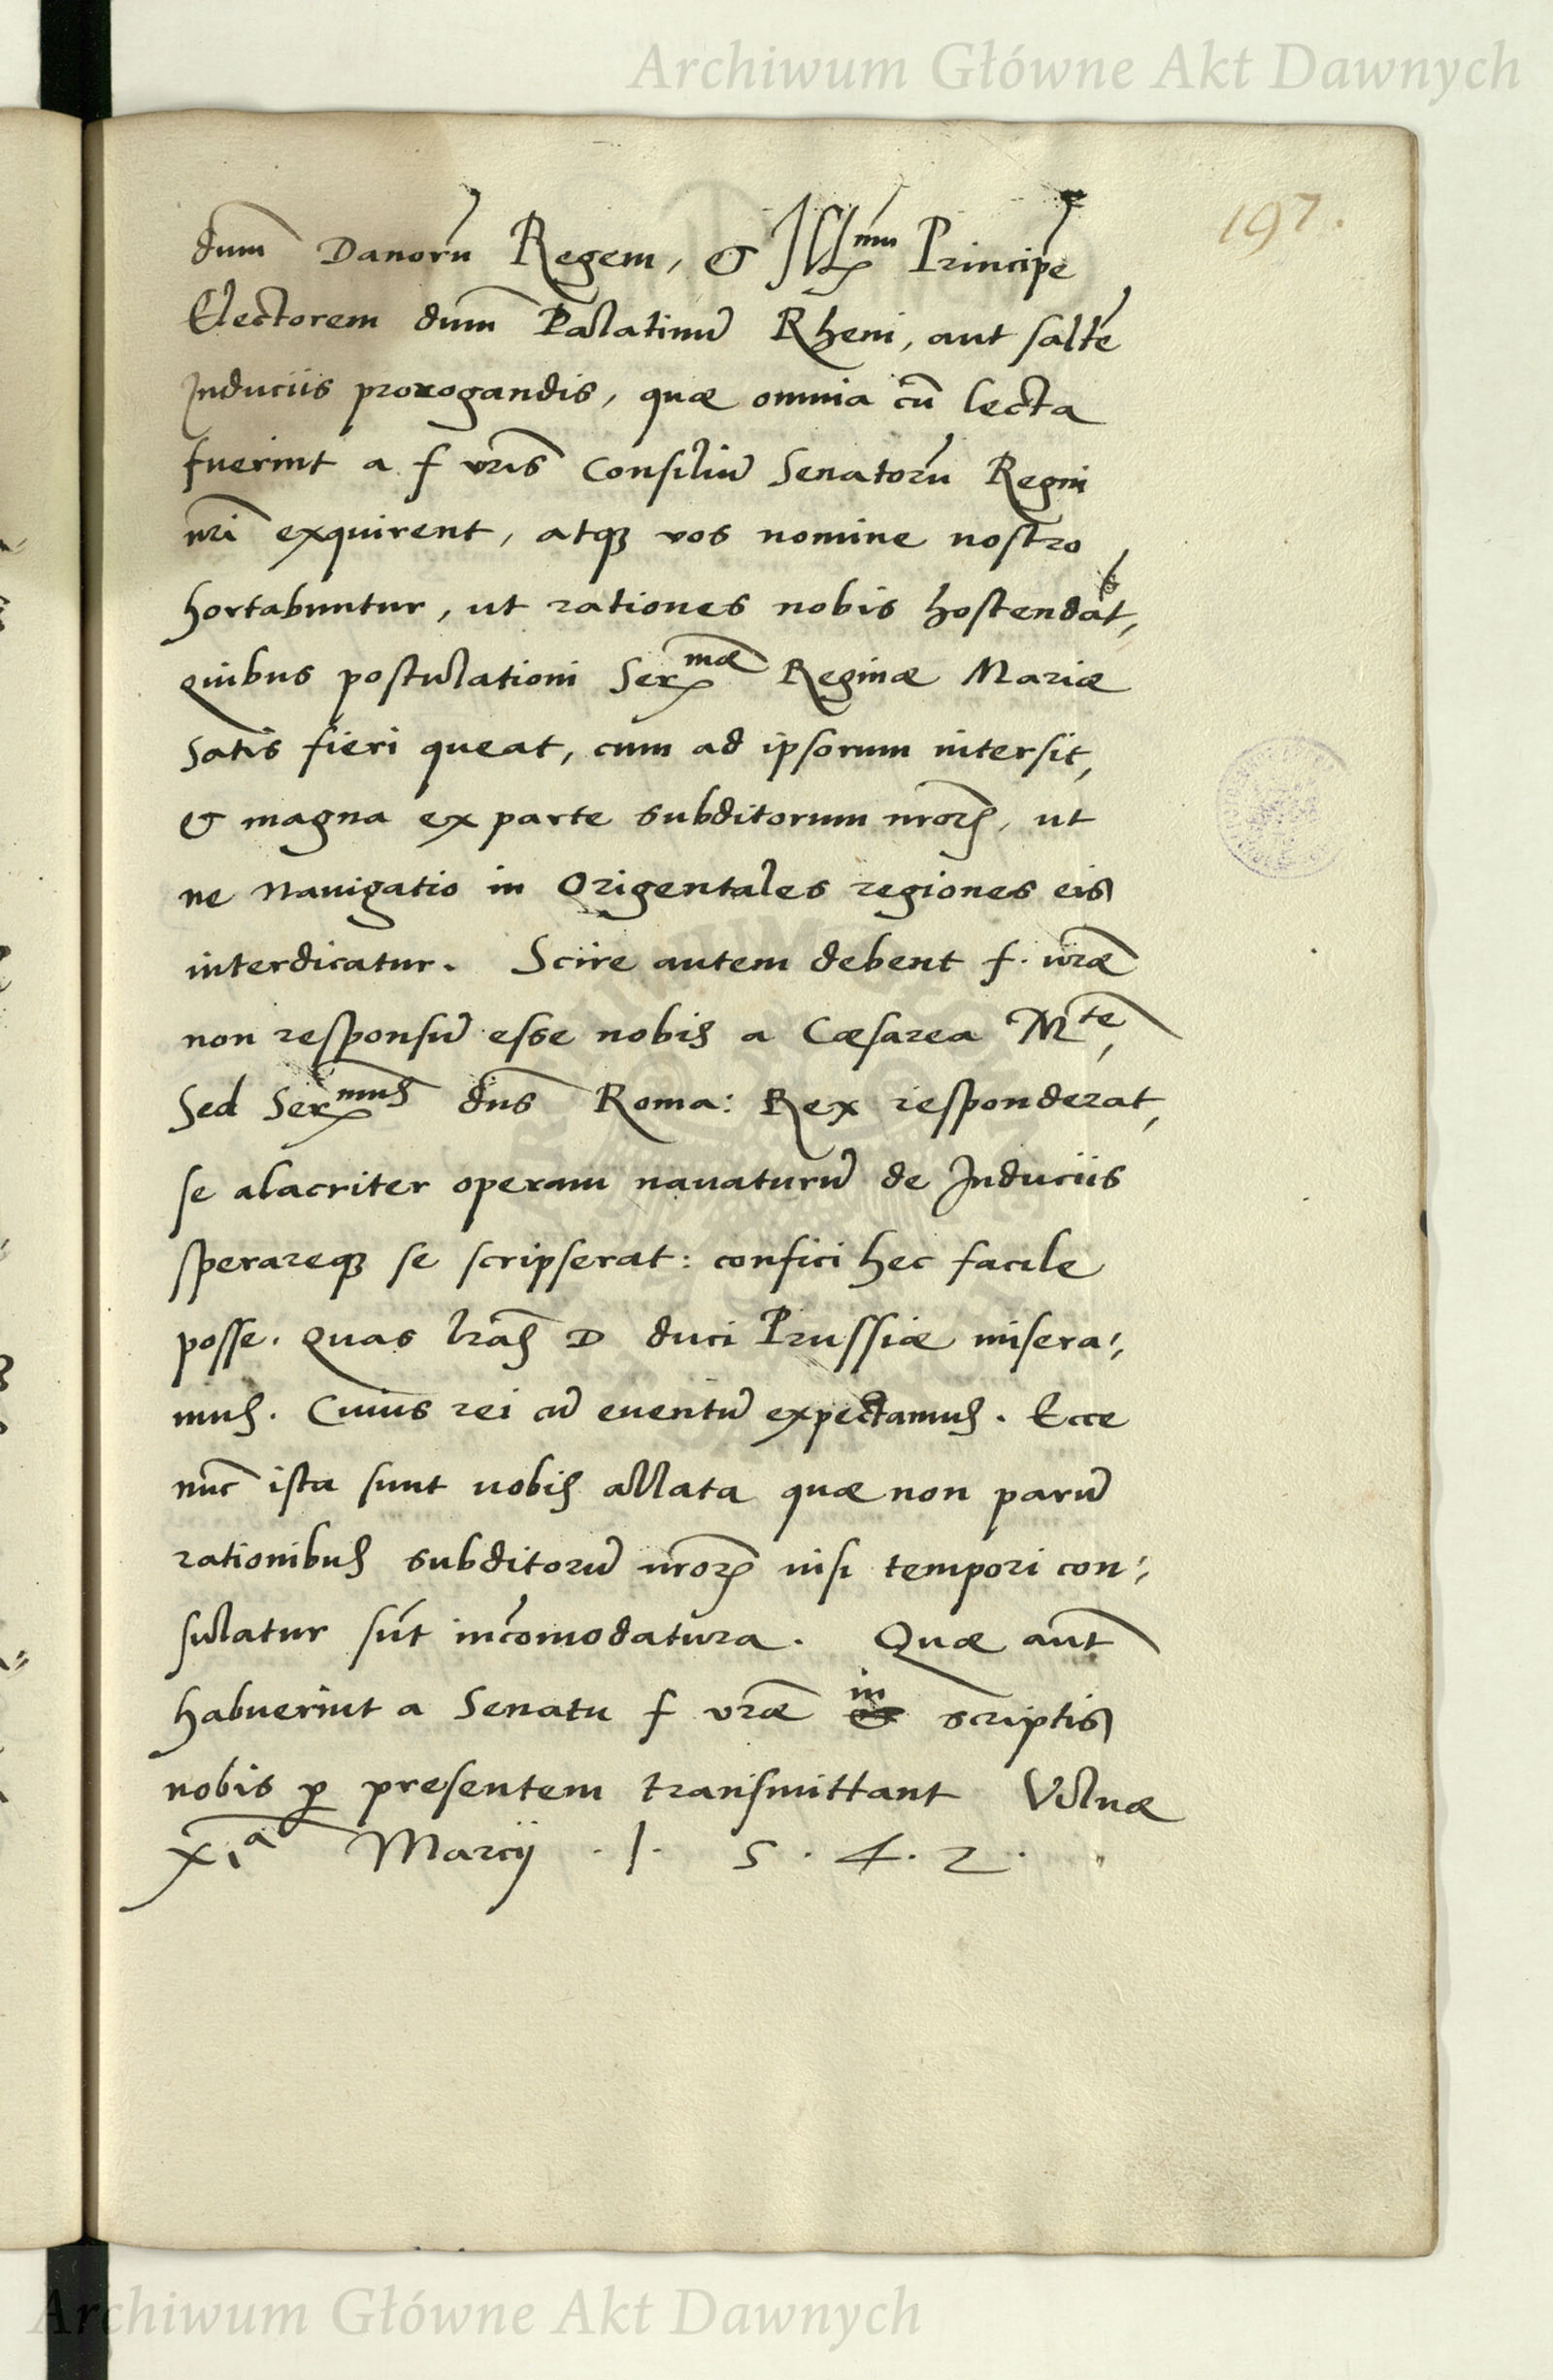 Archiwum Główne Akt Dawnych
197.
dum̄ Danorū Regem, & Illmu Principē
Electorem dum̄ Palatinū Rheni, aut saltē
Induciis prorogandis, quæ omnia cū lecta
fuerint a f vris̄ Consiliū Senatorū Regni
nr̄i exquirent, atqꝫ vos nomine nostro
hortabuntur, ut rationes nobis hostendāt,
quibus postulationi Sermæ Reginæ Mariæ
satis fieri queat, cum ad ipsorum intersit,
& magna ex parte subditorum nr̄orꝫ, ut
ne navigatio in Origentales regiones eis
interdicatur. Scire autem debent f. vrǣ
non responsū esse nobis a Cæsarea Mte,
Sed Sermus dn̄s Roma: Rex responderat,
se alacriter operam navaturū de Induciis
sperareqꝫ se scripserat: confici hec facile
posse. Quas lrās D duci Prussiæ misera-,
mus. Cuius rei cū eventū expectamus. Ecce
nūc ista sunt nobis allata quæ non parū
rationibus subditorū nr̄orꝫ nisi tempori con-,
sulatur sūt incōmodatura. Quæ aut̄
habuerint a Senatu f vrǣ in scriptis
nobis ꝑ presentem transmittant Vilnæ
XIa Marcij .1. 5. 4. 2.
Archiwum Główne Akt Dawnych